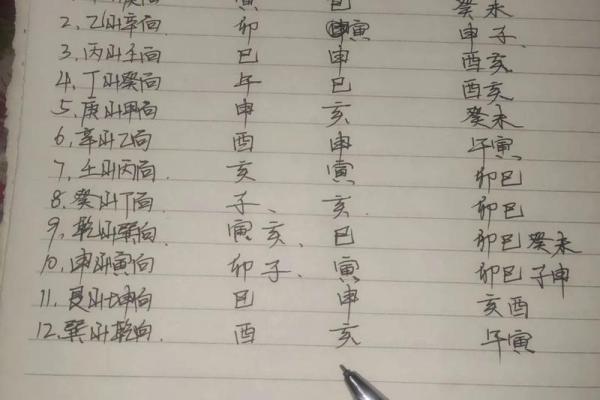 寅 巳 癸未
2、乙山辛向 卯 寅 申子
3、丙山壬向 巳 申 酉亥
4、丁山癸向 午 巳 酉亥
5、庚山甲向 申 亥 癸未
6、辛山乙向 酉 申 午寅
7、壬山丙向 亥 寅 卯巳
8、癸山丁向 子、 亥 卯巳
9、乾山巽向 寅亥、 巳 卯巳癸未
10、申山寅向 卯子、 寅 卯巳子申
11、艮山坤向 巳 申 亥酉
12、巽山乾向 酉 亥 午寅